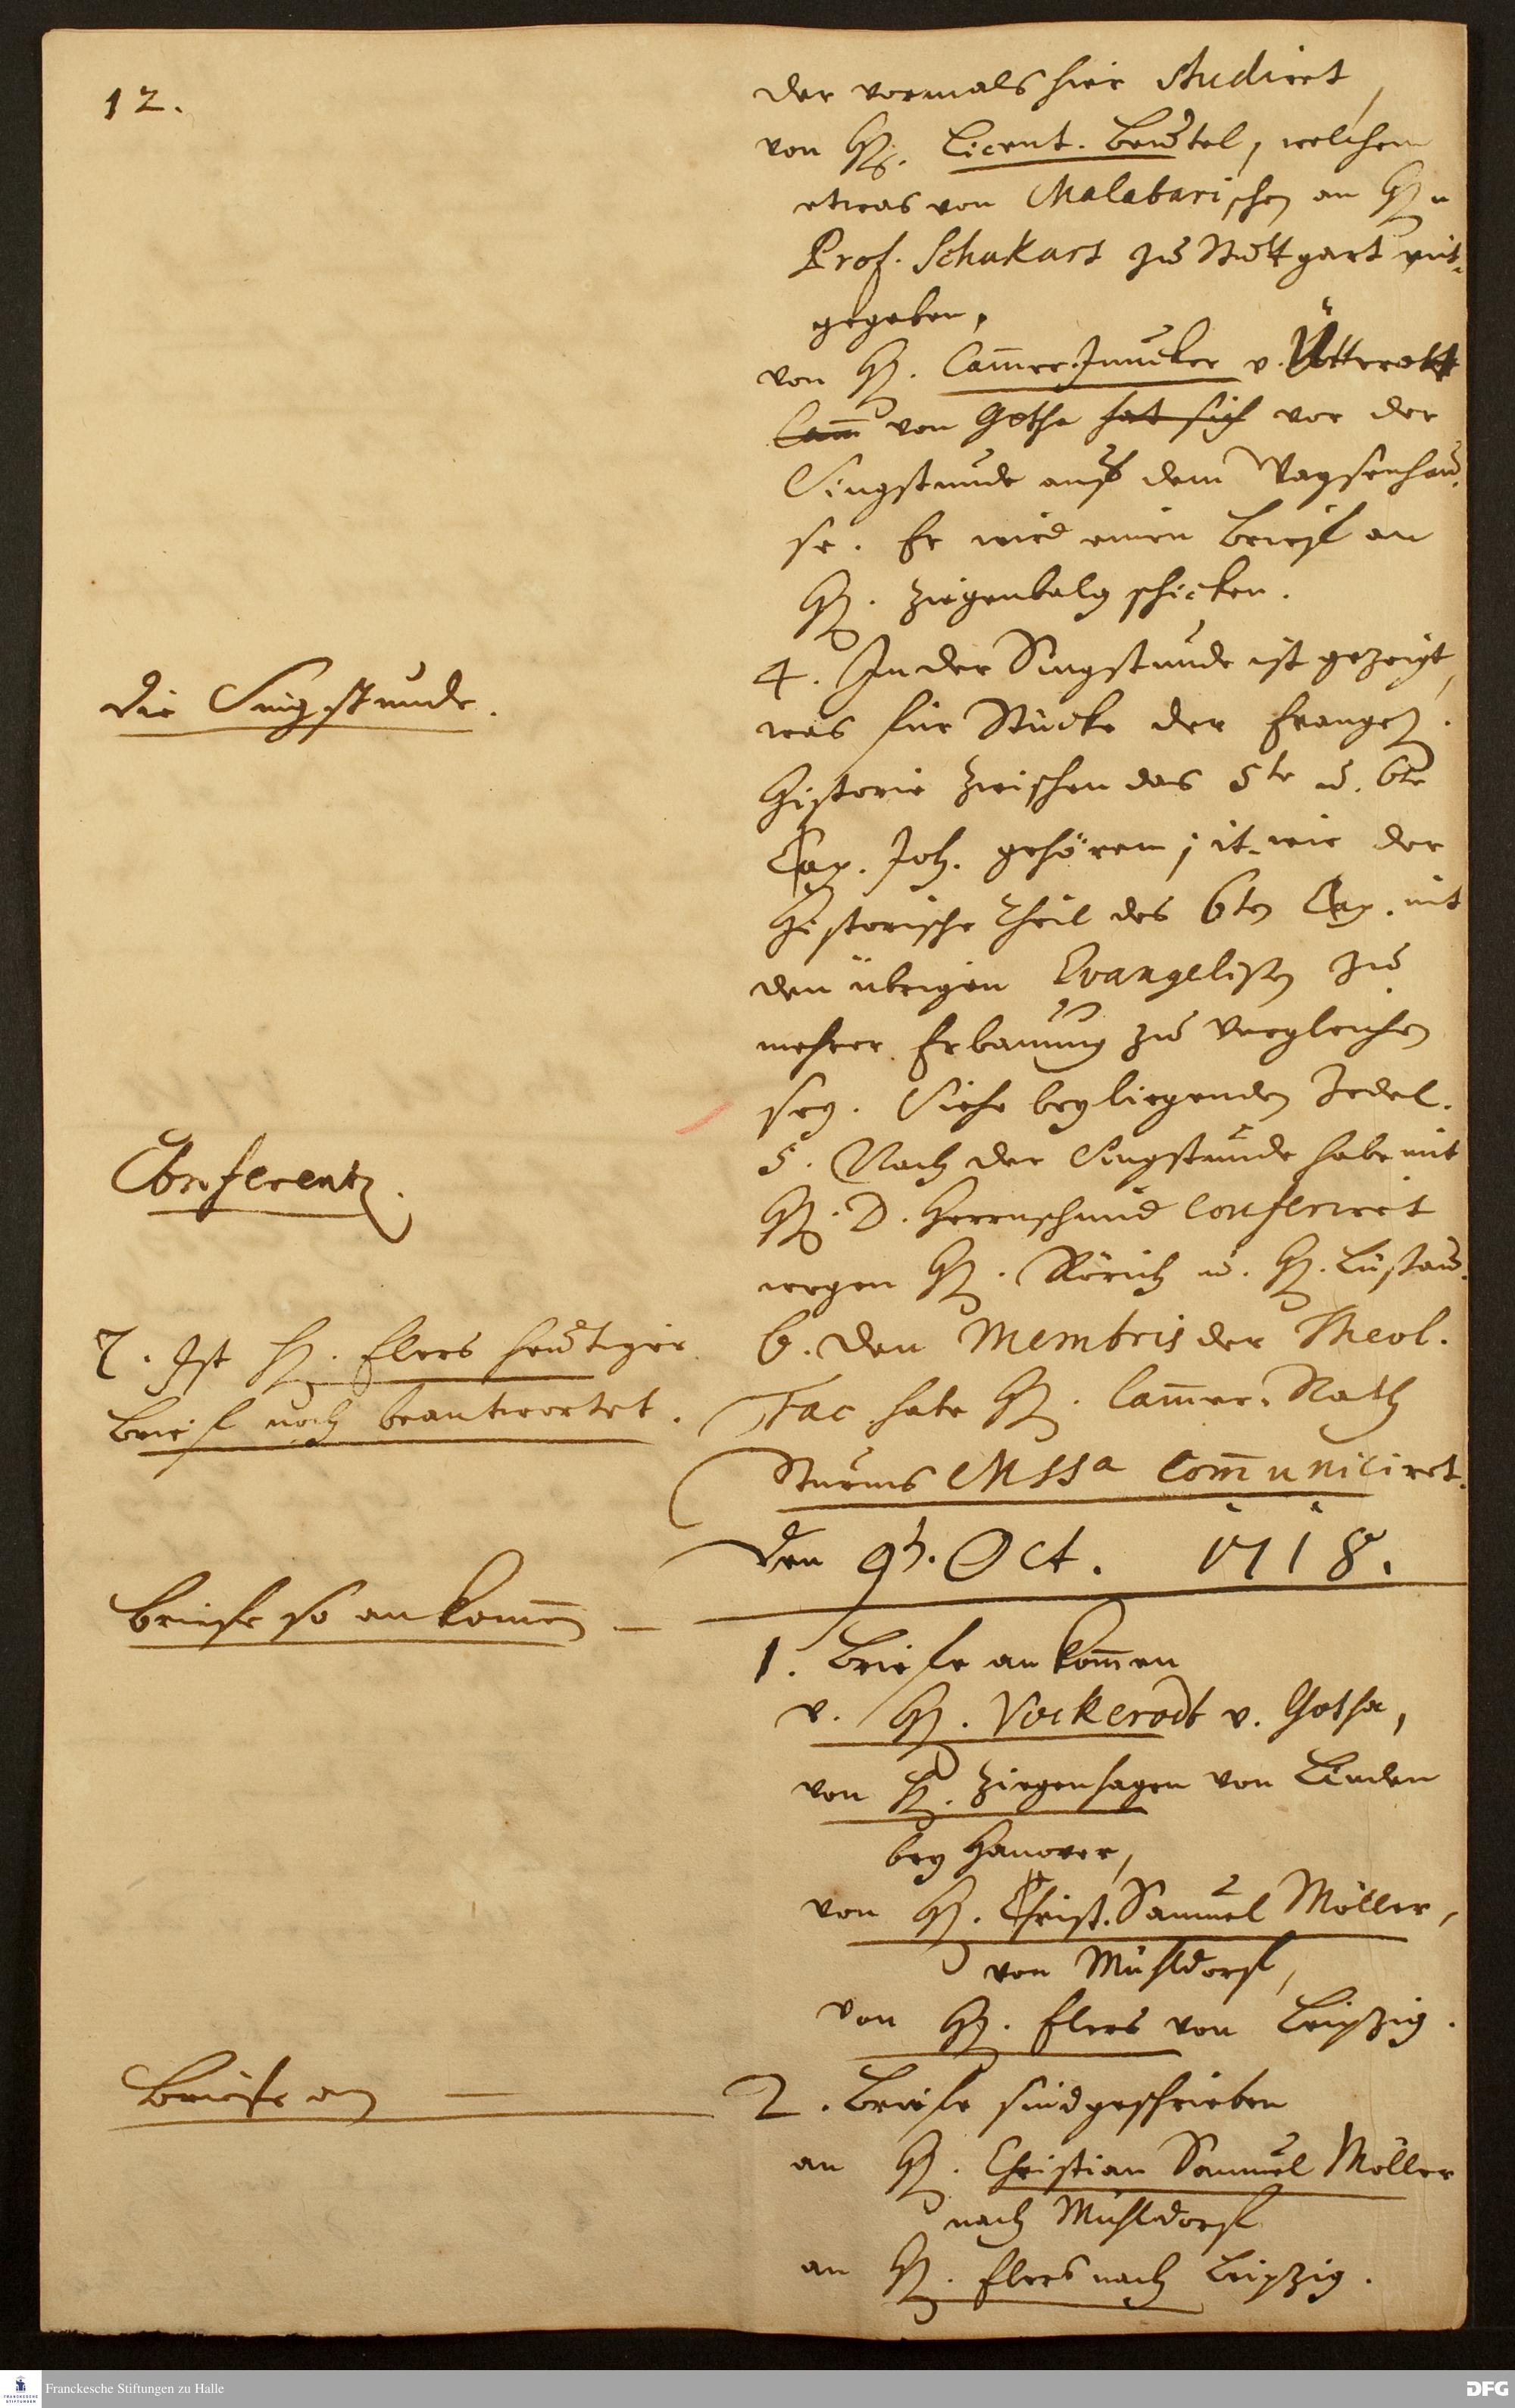 12.
der vormals hier studiret,
von H. Licent. Beutel, welchem
etwas von Malabarischen an H. 
Prof. Schukart zu Stuttgart mit-
gegeben,
von H. Cam̄er-Juncker v. Ütterodt
Cam̄ von Gotha hat sich vor der
Singstunde auß dem Waysenhau-
se. Er wird einen Brief an
H. Ziegenbalg schicken.
Die Singstunde.
4. In der Singstunde ist gezeigt,
was für Stücke der Evangel.
Historie zwischen das 5te u. 6te
Cap. Joh. gehören; it. wie der
Historische Theil des 6ten Cap. mit
den übrigen Evangelisten zu
mehrer Erbauung zu vergleichen
sey. Siehe beyliegenden Zedel.
Conferentz.
5. Nach der Singstunde habe mit
H. D. Herrnschmid conferiret
wegen H. Rörich u. H. Lüstau.
6. Den Membris der Theol.
Fac habe H. Cam̄er-Rath
Sturms Mssa com̄uniciret.
7. Ist H. Elers heutiger
Brief noch beantwortet.
Den 9t. Oct. 1718.
Briefe so ankom̄en
1. Briefe ankom̄en
v. H. Vockerodt v. Gotha,
von H. Ziegenhagen von Linden
bey Hanover,
von H. Christ. Samuel Möller,
von Mühldorf,
von H. Elers von Leipzig.
Briefe an
2. Briefe sind geschrieben
an H. Christian Samuel Möller
nach Mühldorf
an H. Elers nach Leipzig.
Franckesche Stiftungen zu Halle
FRANCKESCHE STIFTUNGEN
DFG